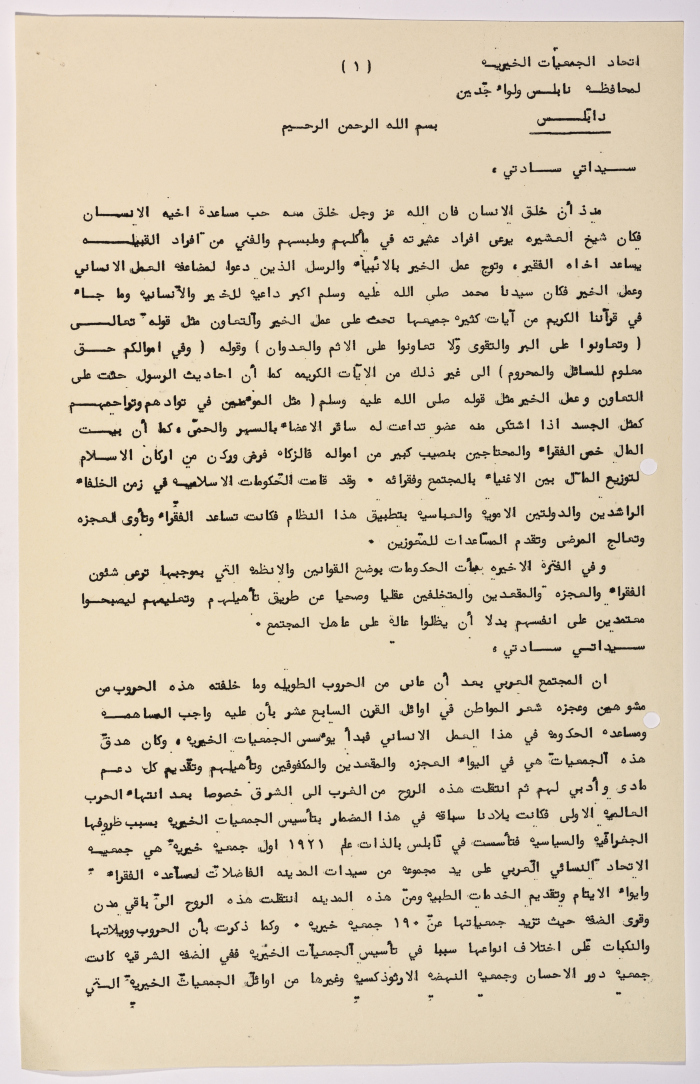 اتحاد الجمعيات الخيريه
لمحافظة نابلس ولواء جنين
نابلس
( ١ )
بسم الله الرحمن الرحيم
سيداتي سادتي ،
منذ أن خلق الانسان فان الله عز وجل خلق معه حب مساعدة اخيه الانسان
فكان شيخ العشيره يرعى افراد عشيرته في مأكلهم وملبسهم والغني من افراد القبيله
يساعد اخاه الفقير ، وتوج عمل الخير بالانبياء والرسل الذين دعوا لمضاعفة العمل الانساني
وعمل الخير فكان سيدنا محمد صلى الله عليه وسلم اكبر داعية للخير والانسانيه وما جاء
في قرآننا الكريم من آيات كثيره جميعها تحث على عمل الخير والتعاون مثل قوله تعالى
( وتعاونوا على البر والتقوى ولا تعاونوا على الاثم والعدوان ) وقوله ( وفي اموالكم حق
معلوم للسائل والمحروم ) الى غير ذلك من الآيات الكريمه كما أن احاديث الرسول حثت على
التعاون وعمل الخير مثل قوله صلى الله عليه وسلم ( مثل المؤمنين في توادهم وتراحمهم
كمثل الجسد اذا اشتكى منه عضو تداعت له سائر الاعضاء بالسهر والحمى ، كما أن بيت
المال خص الفقراء والمحتاجين بنصيب كبير من امواله فالزكاه فرض وركن من اركان الاسلام
لتوزيع المال بين الاغنياء بالمجتمع وفقرائه ٠ وقد قامت الحكومات الاسلاميه في زمن الخلفاء
الراشدين والدولتين الامويه والعباسيه بتطبيق هذا النظام فكانت تساعد الفقراء وتأوى العجزه
وتعالج المرضى وتقدم المساعدات للمعوزين ٠
وفي الفترة الاخيره بدأت الحكومات بوضع القوانين والانظمه التي بموجبها ترعى شئون
الفقراء والعجزه والمقعدين والمتخلفين عقليا وصحيا عن طريق تأهيلهم وتعليمهم ليصبحوا
معتمدين على انفسهم بدلا أن يظلوا عالة على عاهل المجتمع ٠
سيداتي سادتي ،
ان المجتمع الغربي بعد أن عانى من الحروب الطويله وما خلفته هذه الحروب من
مشوهين وعجزه شعر المواطن في اوائل القرن السابع عشر بأن عليه واجب المساهمه
ومساعده الحكومة في هذا العمل الانساني فبدأ يؤسس الجمعيات الخيريه ، وكان هدف
هذه الجمعيات هي في ايواء العجزه والمقعدين والمكفوفين وتأهيلهم وتقديم كل دعم
مادى وأدبي لهم ثم انتقلت هذه الروح من الغرب الى الشرق خصوصا بعد انتهاء الحرب
العالميه الاولى فكانت بلادنا سباقه في هذا المضمار بتأسيس الجمعيات الخيريه بسبب ظروفها
الجغرافيه والسياسيه فتأسست في نابلس بالذات عام ١٩٢١ اول جمعية خيرية هي جمعيه
الاتحاد النسائي العربي على يد مجموعه من سيدات المدينه الفاضلات لمساعده الفقراء
وايواء الايتام وتقديم الخدمات الطبيه ومن هذه المدينه انتقلت هذه الروح الى باقي مدن
وقرى الضفه حيث تزيد جمعياتها عن ١٩٠ جمعية خيريه ٠ وكما ذكرت بأن الحروب وويلاتها
والنكبات على اختلاف انواعها سببا في تأسيس الجمعيات الخيريه ففي الضفه الشرقيه كانت
جمعيه دور الاحسان وجمعيه النهضه الارثوذكسيه وغيرها من اوائل الجمعيات الخيريه التي